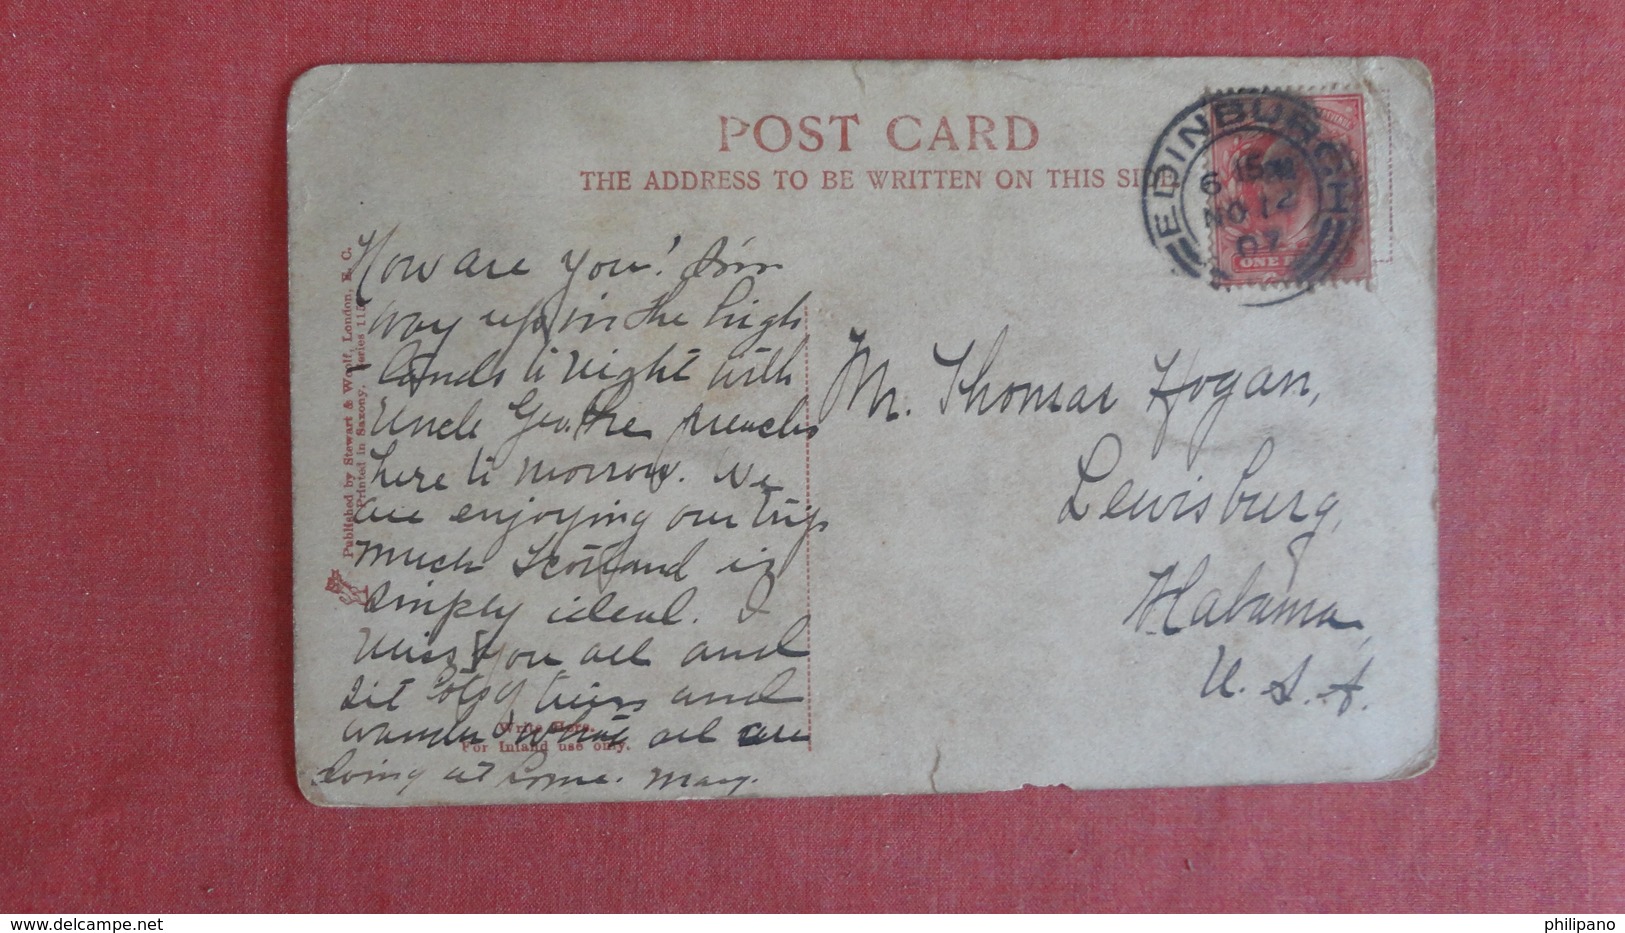 POST CARD
THE ADDRESS TO BE WRITTEN ON THIS SIDE
EDINBURGH
6 15
NO 12
07
ONE PENNY
Published by Stewart & Woolf, London, E. C.
Printed in Saxony. Series 115
How are you! I'm
way up in the high
-lands to night with
Uncle Geo. He preaches
here to morrow. We
are enjoying our trip
much Scotland is
simply ideal. I
miss you all and
sit lots of times and
wander what all are
doing at home. Mary.
Write Here.
For Inland use only.
Mr. Thomas Hogan,
Lewisburg,
Alabama,
U. S. A.
www.delcampe.net
philipano